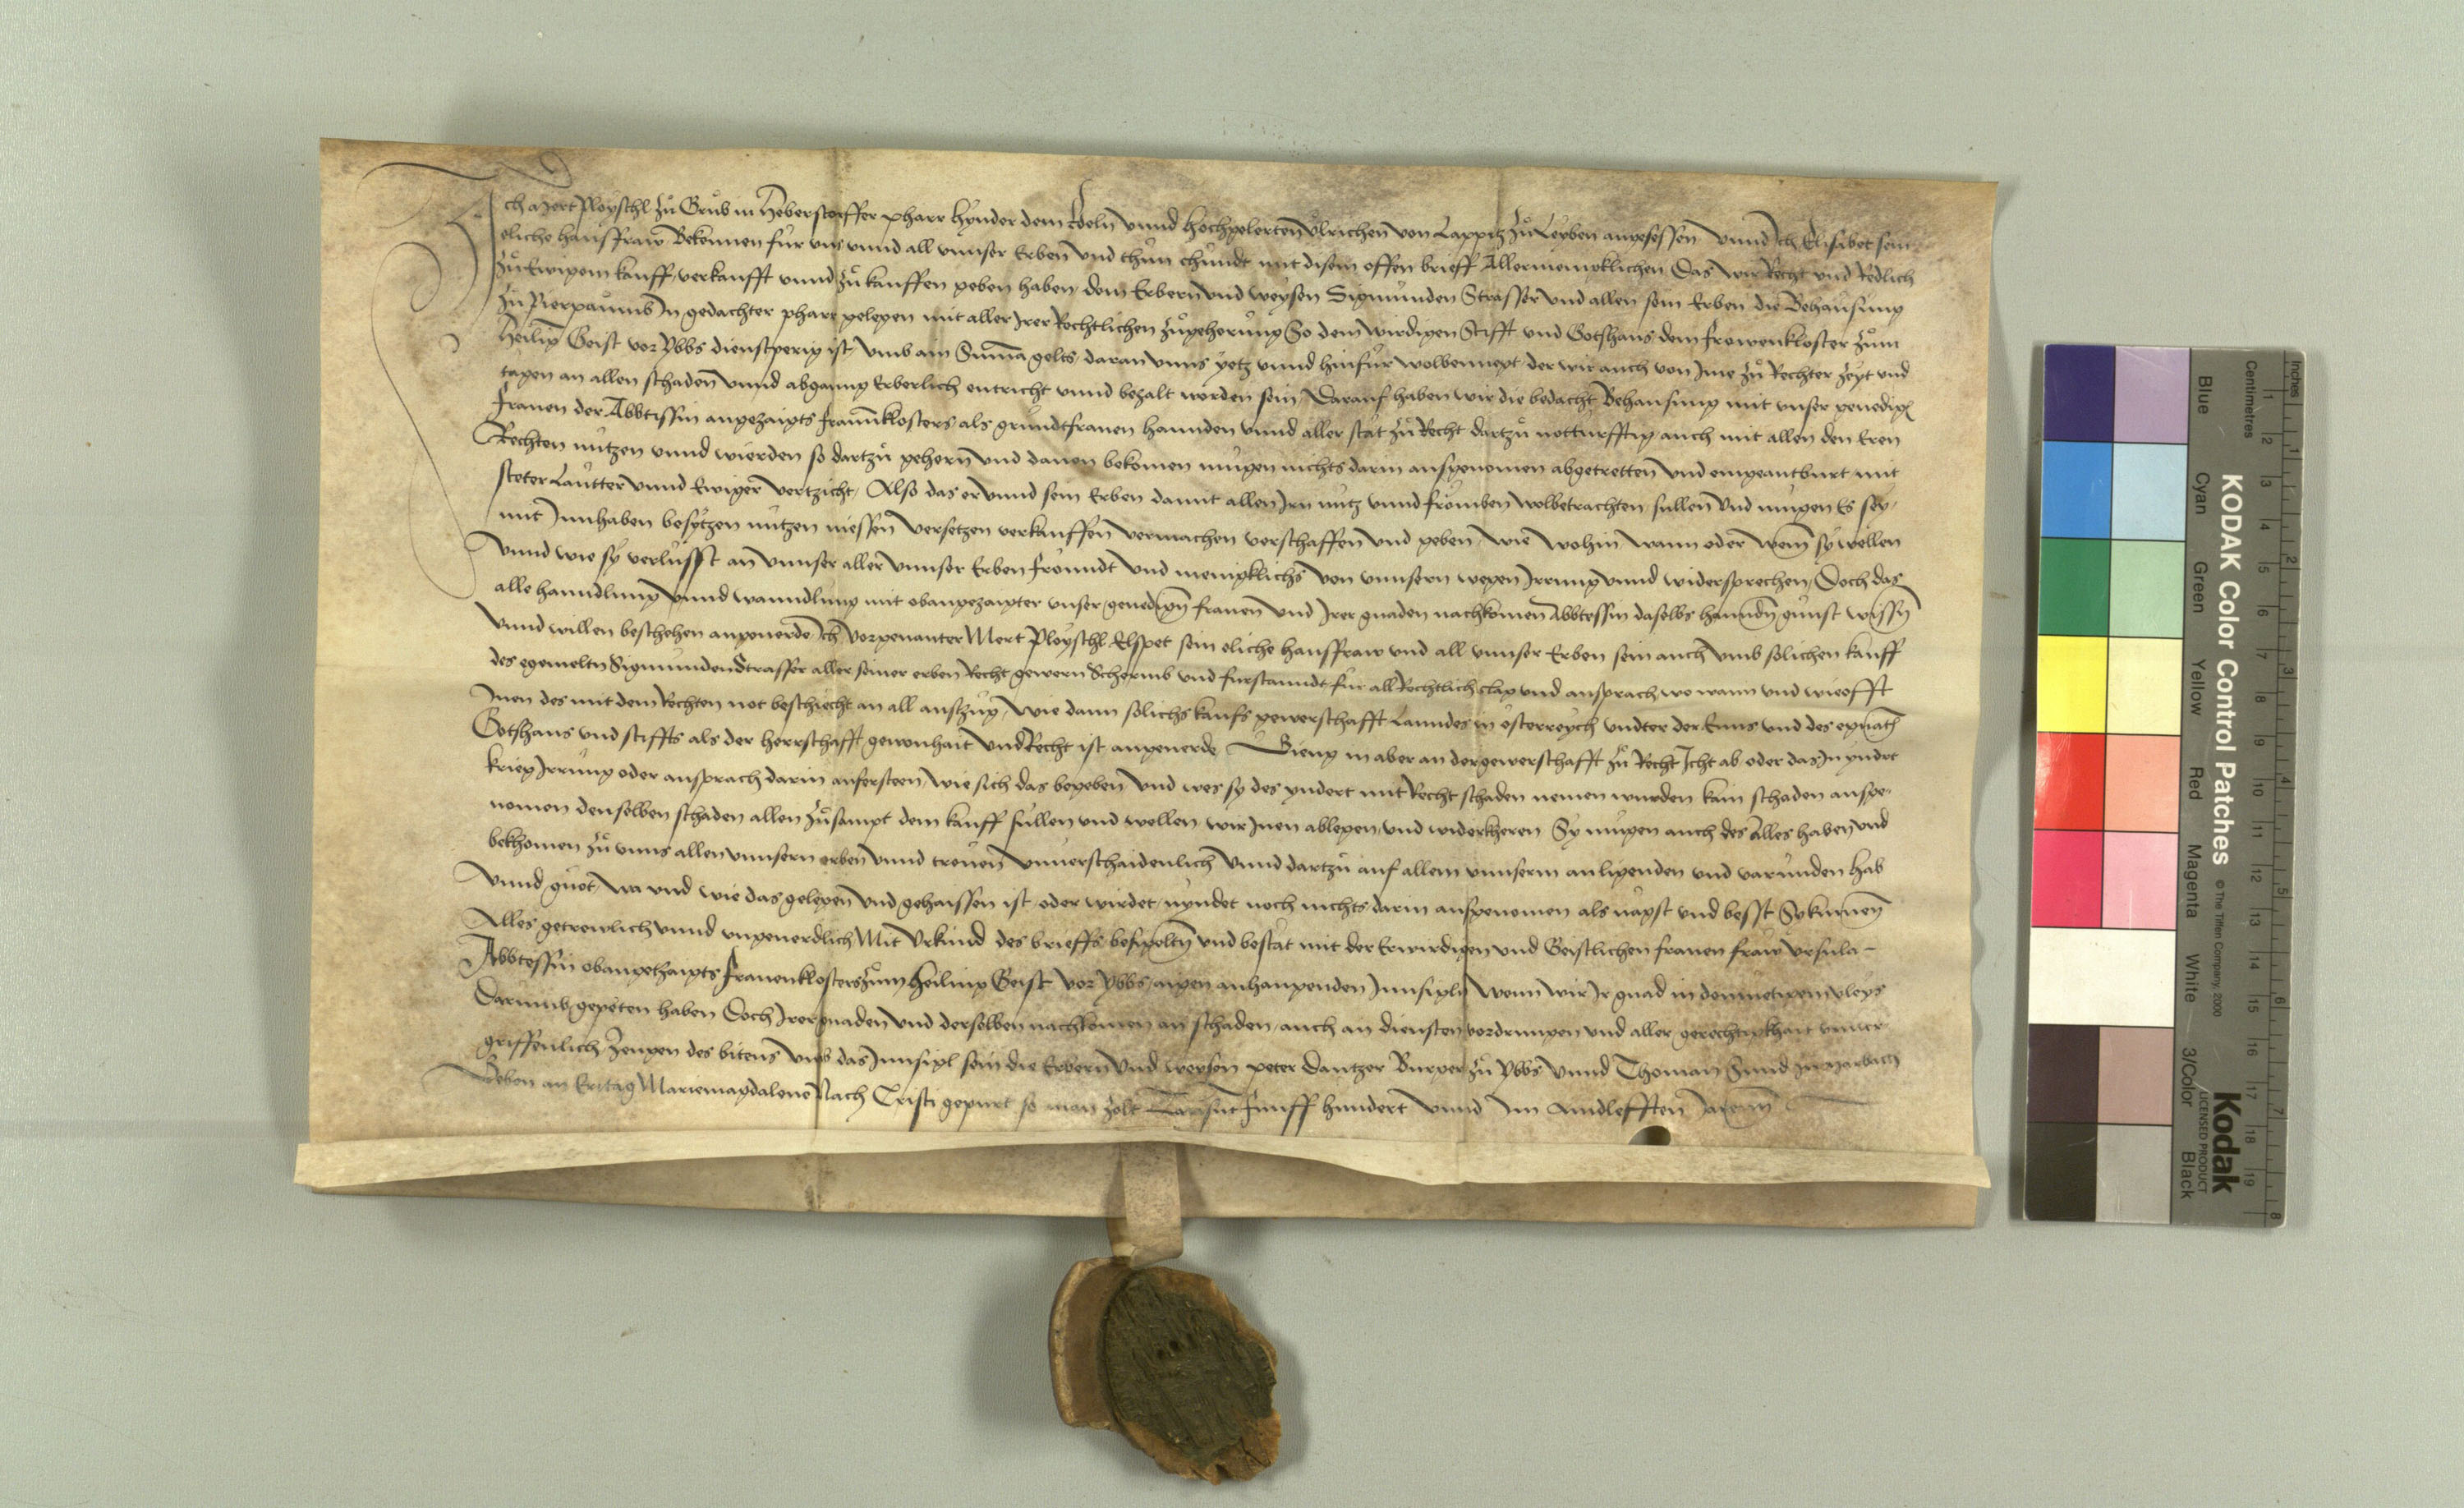 Ich Mert Ployschl zů Grůb in Heberstorffer pharr hÿnder dem Edeln vnnd hochgelerten Ůlrichen von Lappitz zů Lerben angesessen vnnd Ich Elisabet sein
eliche hausfraw Bekennen für vns vnnd all vnnser Erben vnd thůn chůndt mit disem offen brieff Allermenigklichen Das wir Recht vnd Redlich
zů Ewigem kauff verkaufft vnnd zů kauffen geben haben dem Erbern vnd weysen Sigmůnden Strasser vnd allen sein Erben die Behaůsung
zů Pierpaůmb In gedachter pharr gelegen mit aller Irer Rechtlichen zůgeherůng So dem wirdigen Stifft vnd Gotshaus dem frowenkloster zům
Heilig Geist vor Ybbs dienstperig ist vmb ain Suma gelts daran vnns yetz vnnd hinfür wolbenuegt der wir auch von Ime zů Rechter zeyt vnd
tagen an allen schaden vnnd abganng Erberlich entricht vnnd bezalt worden sein Darauf haben wir die bedacht Behausung mit vnser genedig
frauen der Abbtissin angezaigts fraunklosters als grůndtfrauen hannden vnnd aller stat zů Recht dartzů notturfftig auch mit allen den Eren
Rechten nützen vnnd wierden so dartzů gehern vnd dauon bekomen mügen nichts darin ausgenomen abgetretten vnd eingeantburt mit
steter Laůtter vnnd Ewiger vertzicht Also das er vnnd sein Erben damit allen Irn nutz vnnd frömben wolbetrachten sullen vnd mügen Es sey
mit Innhaben besytzen nützen niessen versetzen verkauffen vermachen verschaffen vnd geben wie wohin wann oder wem sy wellen
vnnd wie sy verlüsst an vnnser aller vnnser Erben freundt vnd menigklichs von vnnsern wegen Irrung vnnd widersprechen Doch das
alle hanndlung vnnd wanndlung mit obangezaigter vnser genedign frauen vnd Irer gnaden nachkomen Abbtessin daselbs hanndn gůnst wissn
vnnd willen beschehen angeuerde Ich vorgenanter Mert Ployschl Elspet sein eliche hausfraw vnd all vnnser Erben sein auch vmb solichen kauff
des egemeltn Sigmunden Strasser aller seiner erben Recht gewern Schermb vnd furstanndt für all Rechtlich clag vnd ansprach wo wann vnd wieofft
Inen des mit dem Rechten not beschiecht an all auszůg wie dann solichs kaufs gewerschafft Lanndes in österreych vndter der Enns vnd des egenat
Gotshaus vnd stiffts als der herrschafft gewonhait vnd Recht ist angeuerde Gieng in aber an der gewerschafft zů Recht Icht ab oder das In yndrt
krieg Irrung oder ansprach darin aufersteen wie sich das begeben vnd wes sy des yndert mit Recht schaden nemen wurden kain schaden ausge
nomen denselben schaden allen zůsampt dem kauff süllen vnd wellen wir Inen ablegen vnd widerkheren Sy mügen auch des Alles haben vnd
bekhomen zů vnns allen vnnsern erben vnnd treuen vnuerschaidenlich vnnd dartzů auf allem vnnserm anligenden vnd varunden hab
vnnd gůot wa vnd wie das gelegen vnd gehaissen ist oder wirdet nyndet noch nichts darin ausgenomen als nagst vnd besst Sy kumen
Alles getrewlich vnnd vngeuerdlich Mit Vrkund des brieffs besigeltn vnd bestat mit der Erwirdigen vnd Geistlichen frauen fraw Vrsula
Abbtessin obangethaigts frauenklosters zům Heiling Geist vor Ybbs aigen anhangenden Innsigln Wenn wir Ir gnad in demuetigem vleys
darumb gepeten haben Doch Irer gnaden vnd derselben nachkomen an schaden auch an diensten vordrungen vnd aller gerechtigkhait vnuer
griffenlich Zeugen des bitens vmb das Innsigl sein die Erbern vnd weysen peter dantzer Burger zů Ybbs vnnd Thoman Sund zu Marbach
Geben an Eritag Mariemagdalene Nach Cristi gepurt so man zelt Tausnt Funff hundert vnnd Im Aindlefften Jarenn
KODAK Color Control Patches
© The Tiffen Company, 2000
Kodak
LICENSED PRODUCT
Inches
Centimetres
1 2 3 4 5 6 7 8
1 2 3 4 5 6 7 8 9 10 11 12 13 14 15 16 17 18 19
Blue
Cyan
Green
Yellow
Red
Magenta
White
3/Color
Black